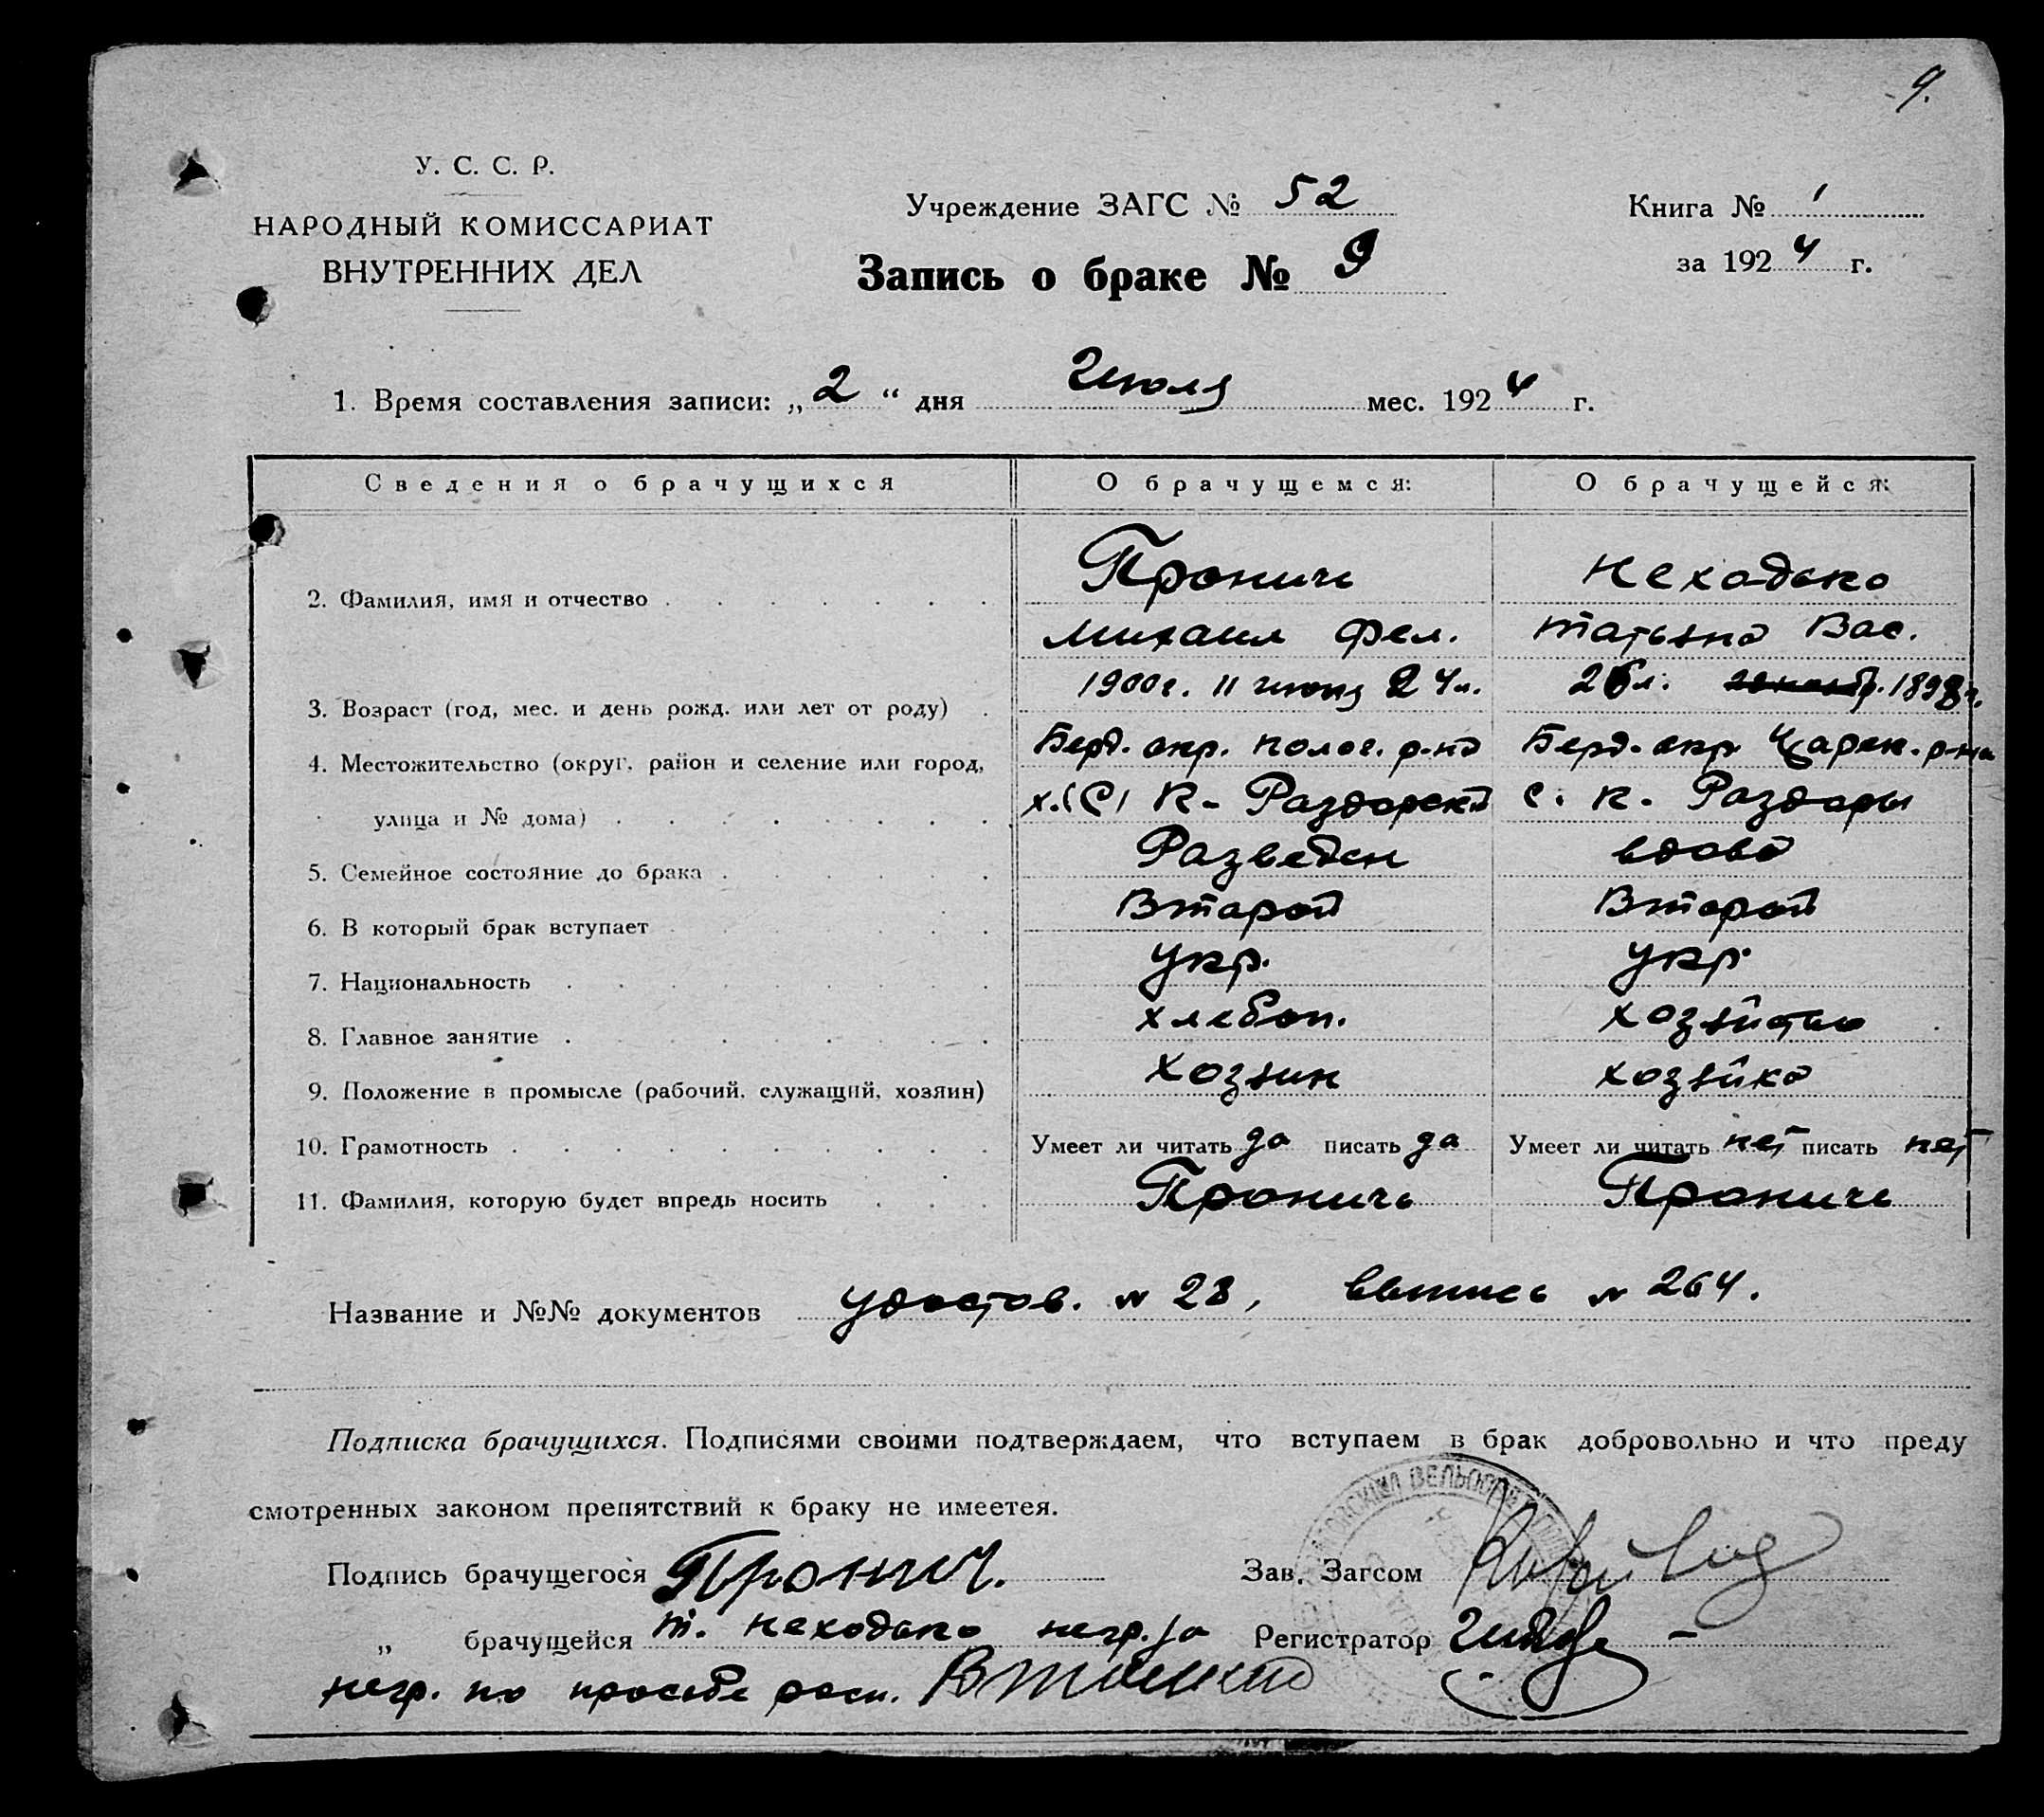 9.
У. С. С. Р.
НАРОДНЫЙ КОМИССАРИАТ
ВНУТРЕННИХ ДЕЛ
Учреждение ЗАГС № 52
Книга № 1
Запись о браке № 9
за 1924 г.
1. Время составления записи: „2“ дня Июля мес. 1924 г.
Сведения о брачущихся О брачущемся: О брачущейся:
2. Фамилия, имя и отчество Пронич Неходько
Михаил Фел. Татьяна Вас.
3. Возраст (год, мес. и день рожд. или лет от роду) 1900г. 11 июня 24л. 26л. 1898г.
4. Местожительство (округ, район и селение или город, Берд. окр. Полог. р-на Берд. окр. Царек. р-на
улица и № дома) х.(С) К- Раздорский с. К. Раздоры
5. Семейное состояние до брака Разведен вдова
6. В который брак вступает Второй Второй
7. Национальность Укр. Укр.
8. Главное занятие хлебоп.
9. Положение в промысле (рабочий, служащий, хозяин) хозяин хозяйка
10. Грамотность Умеет ли читать да писать да Умеет ли читать нет писать нет
11. Фамилия, которую будет впредь носить Пронич Пронич
Название и №№ документов удостов. № 28, выпись № 264.
Подписка брачущихся. Подписями своими подтверждаем, что вступаем в брак добровольно и что преду
смотренных законом препятствий к браку не имеется.
Подпись брачущегося Пронич. Зав. Загсом
„ брачущейся Т. Неходько негр. за Регистратор
негр. по просьбе расп.